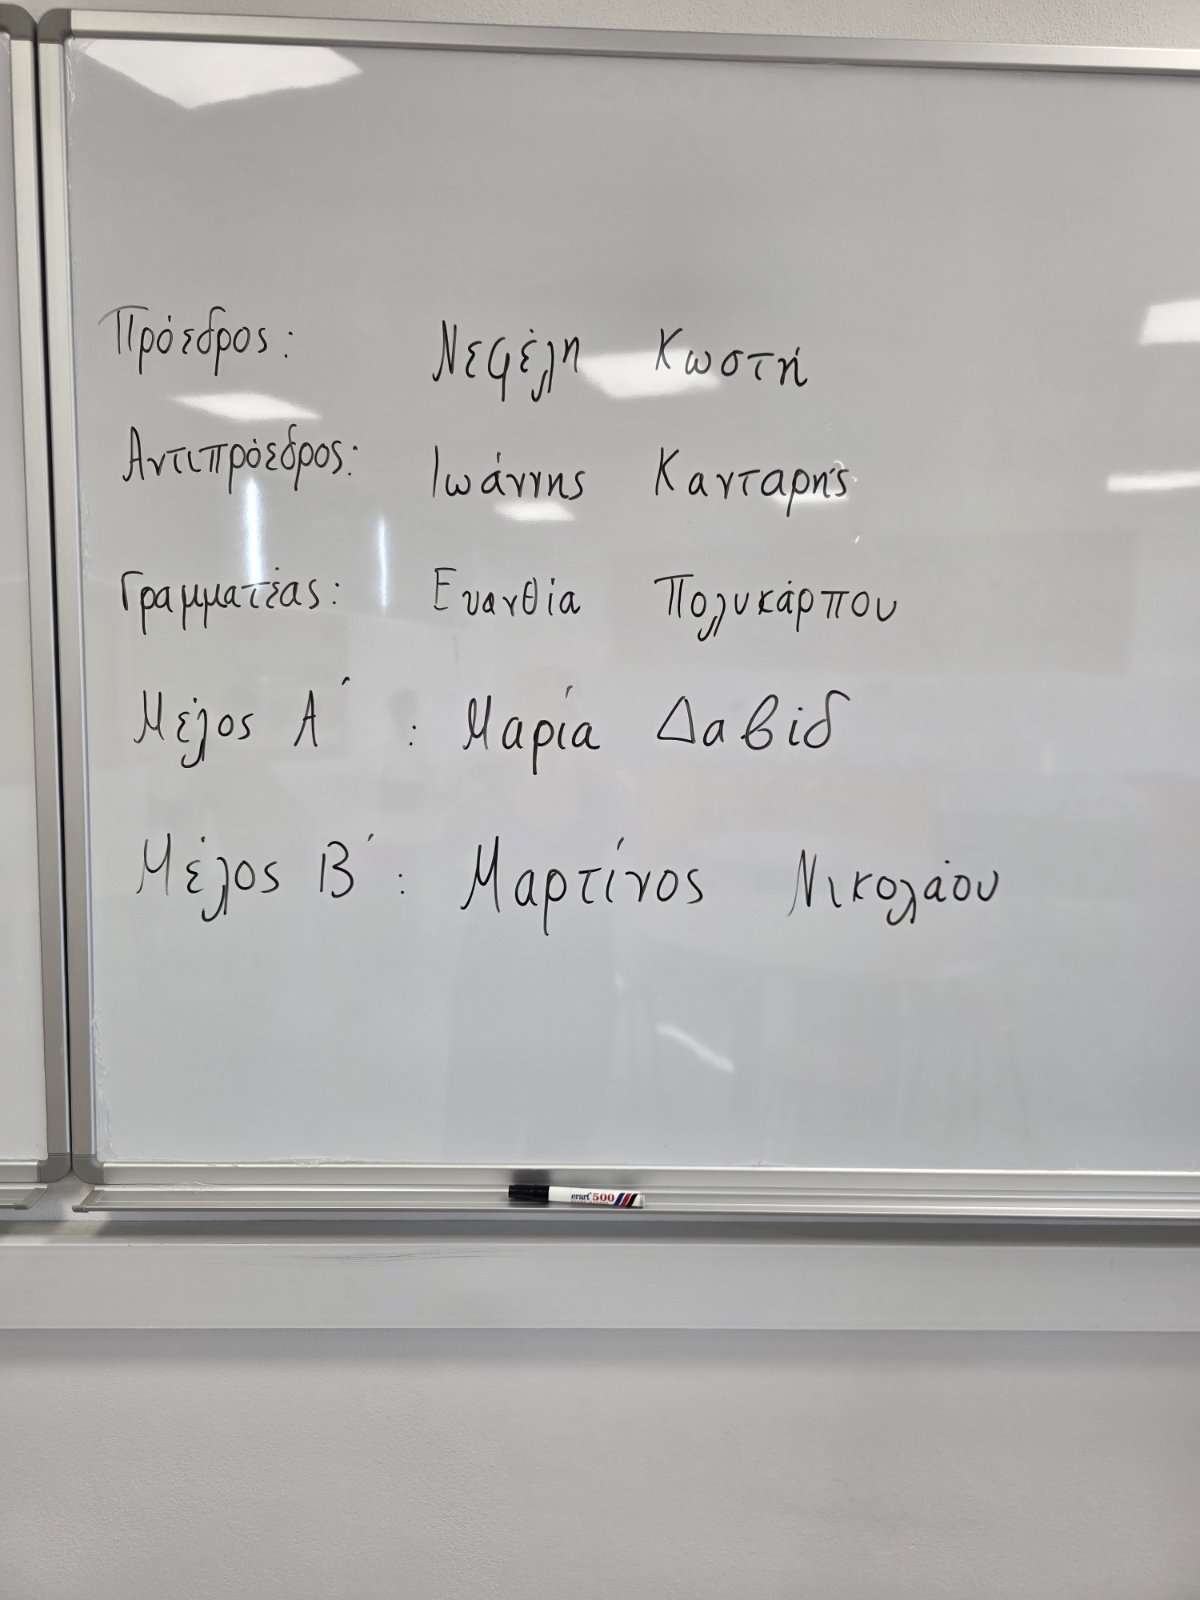 Πρόεδρος: Νεφέλη Κωστή
Αντιπρόεδρος: Ιωάννης Κανταρής
Γραμματέας: Ευανθία Πολυκάρπου
Μέλος Α΄ : Μαρία Δαβίδ
Μέλος Β΄ : Μαρτίνος Νικολάου
erart 500